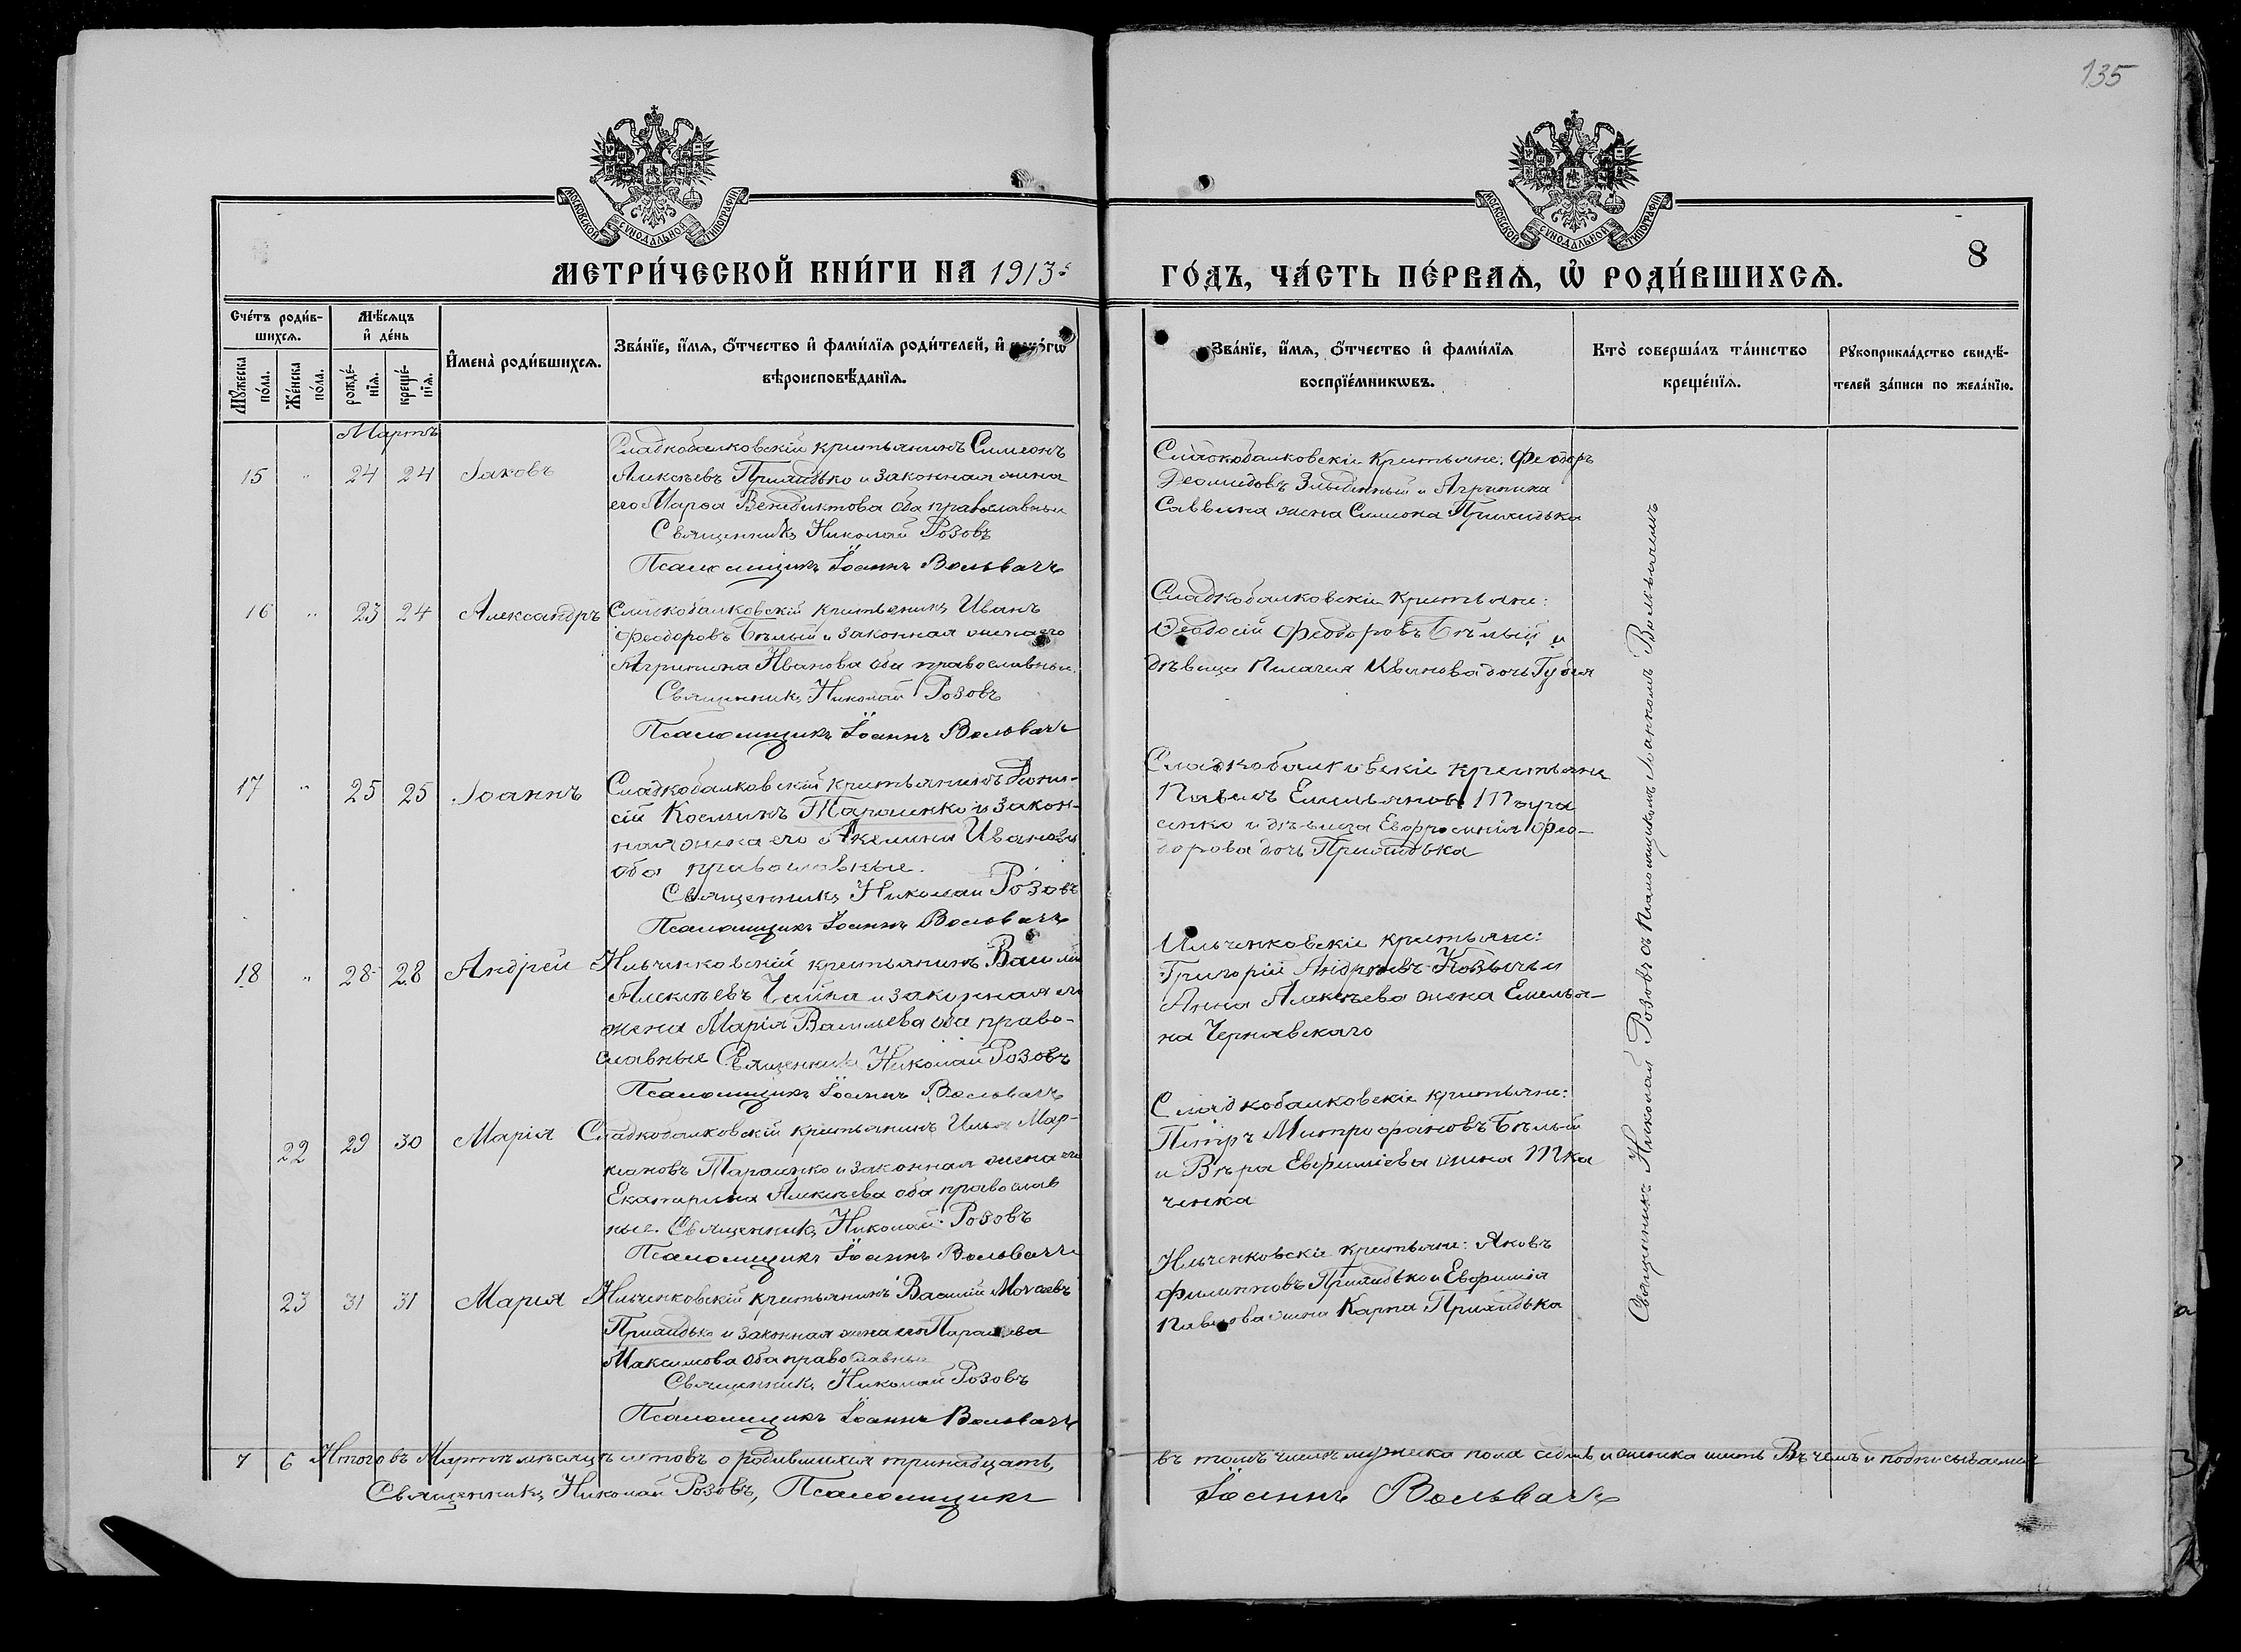 135
МОСКОВСКОЙ СУНОДАЛЬНОЙ ТИПОГРАФІИ
МОСКОВСКОЙ СУНОДАЛЬНОЙ ТИПОГРАФІИ
8
МЕТРИ́ЧЕСКОЙ КНИ́ГИ НА 1913
ГО́ДЪ, ЧА́СТЬ ПЕ́РВАѦ, Ѡ҆ РОДИ́ВШИХСѦ.
Сче́тъ роди́в-
шихсѧ.
Мꙋжеска по́ла.
Же́нска по́ла.
Мѣ́сѧцъ
и҆ де́нь
рожде́-
нїѧ.
креще́-
нїѧ.
И҆мена̀ роди́вшихсѧ.
Зва́нїе, и҆́мѧ, о҆́тчество и҆ фами́лїѧ роди́телей, и҆
вѣроисповѣ́данїѧ.
Зва́нїе, и҆́мѧ, о҆́тчество и҆ фами́лїѧ
воспрїе́мникѡвъ.
Кто̀ соверша́лъ та́инство
креще́нїѧ.
Рꙋкоприкла́дство свидѣ́-
телей за́писи по жела́нїю.
Мартъ
15 " 24 24 Іаковъ
Сладкобалковскій крестьянинъ Симеонъ
Алексѣевъ Приходько и законная жена
его Марѳа Венедиктова оба православные
Священникъ Николай Розовъ
Псаломщикъ Іоаннъ Вольвачъ
Сладкобалковскіе крестьяне: Феодоръ
Агрипина
Саввина жена Симеона Приходька
16 " 23 24 Александръ
Сладкобалковскій крестьянинъ Иванъ
Феодоровъ Бѣлый и законная жена его
Агрипина Иванова оба православные.
Священникъ Николай Розовъ
Псаломщикъ Іоаннъ Вольвачъ
Сладкобалковскіе крестьяне:
Ѳеодосій Феодоровъ Бѣлый и
дѣвица Пелагея Иванова дочь
17 " 25 25 Іоаннъ
Сладкобалковскій крестьянинъ Діони-
сій Косминъ Тарасенко и закон-
ная жена его Акелина Иванова
оба православные.
Священникъ Николай Розовъ
Псаломщикъ Іоаннъ Вольвачъ
Сладкобалковскіе крестьяне
Павелъ Емельяновъ
и дѣвица Евфросинія Фео-
дорова дочь Приходька
18 " 28 28 Андрей
Ильченковскій крестьянинъ Василій
Алексѣевъ Чайка и законная его
жена Марія Васильева оба право-
славные Священникъ Николай Розовъ
Псаломщикъ Іоаннъ Вольвачъ
Ильченковскіе крестьяне:
Григорій Андреевъ и
Анна Алексѣева жена Емелья-
на Чернявскаго
22 29 30 Марія
Сладкобалковскій крестьянинъ Илья Мар-
кіановъ Тарасенко и законная жена его
Екатерина Алексѣева оба православ
ные. Священникъ Николай Розовъ
Псаломщикъ Іоаннъ Вольвачъ
Сладкобалковскіе крестьяне:
Петръ Митрофановъ Бѣлый
и Вѣра Евфиміева жена Тка
ченка
23 31 31 Мария
Ильченковскій крестьянинъ Василій Моѵсеевъ
Приходько и законная жена его Параскева
Максимова оба православные
Священникъ Николай Розовъ
Псаломщикъ Іоаннъ Вольвачъ
Ильченковскіе крестьяне: Яковъ
Филипповъ Приходько и Евфимія
Павлова жена Карпа Приходька
Священникъ Николай Розовъ съ псаломщикомъ Іоанномъ Вольвачемъ
7 6 Итого въ Мартѣ мѣсяцѣ родившихся тринадцать,
въ томъ числѣ мужеска пола седмь и женска шесть Въ чемъ и подписываемся
Священникъ Николай Розовъ, Псаломщикъ
Іоаннъ Вольвачъ